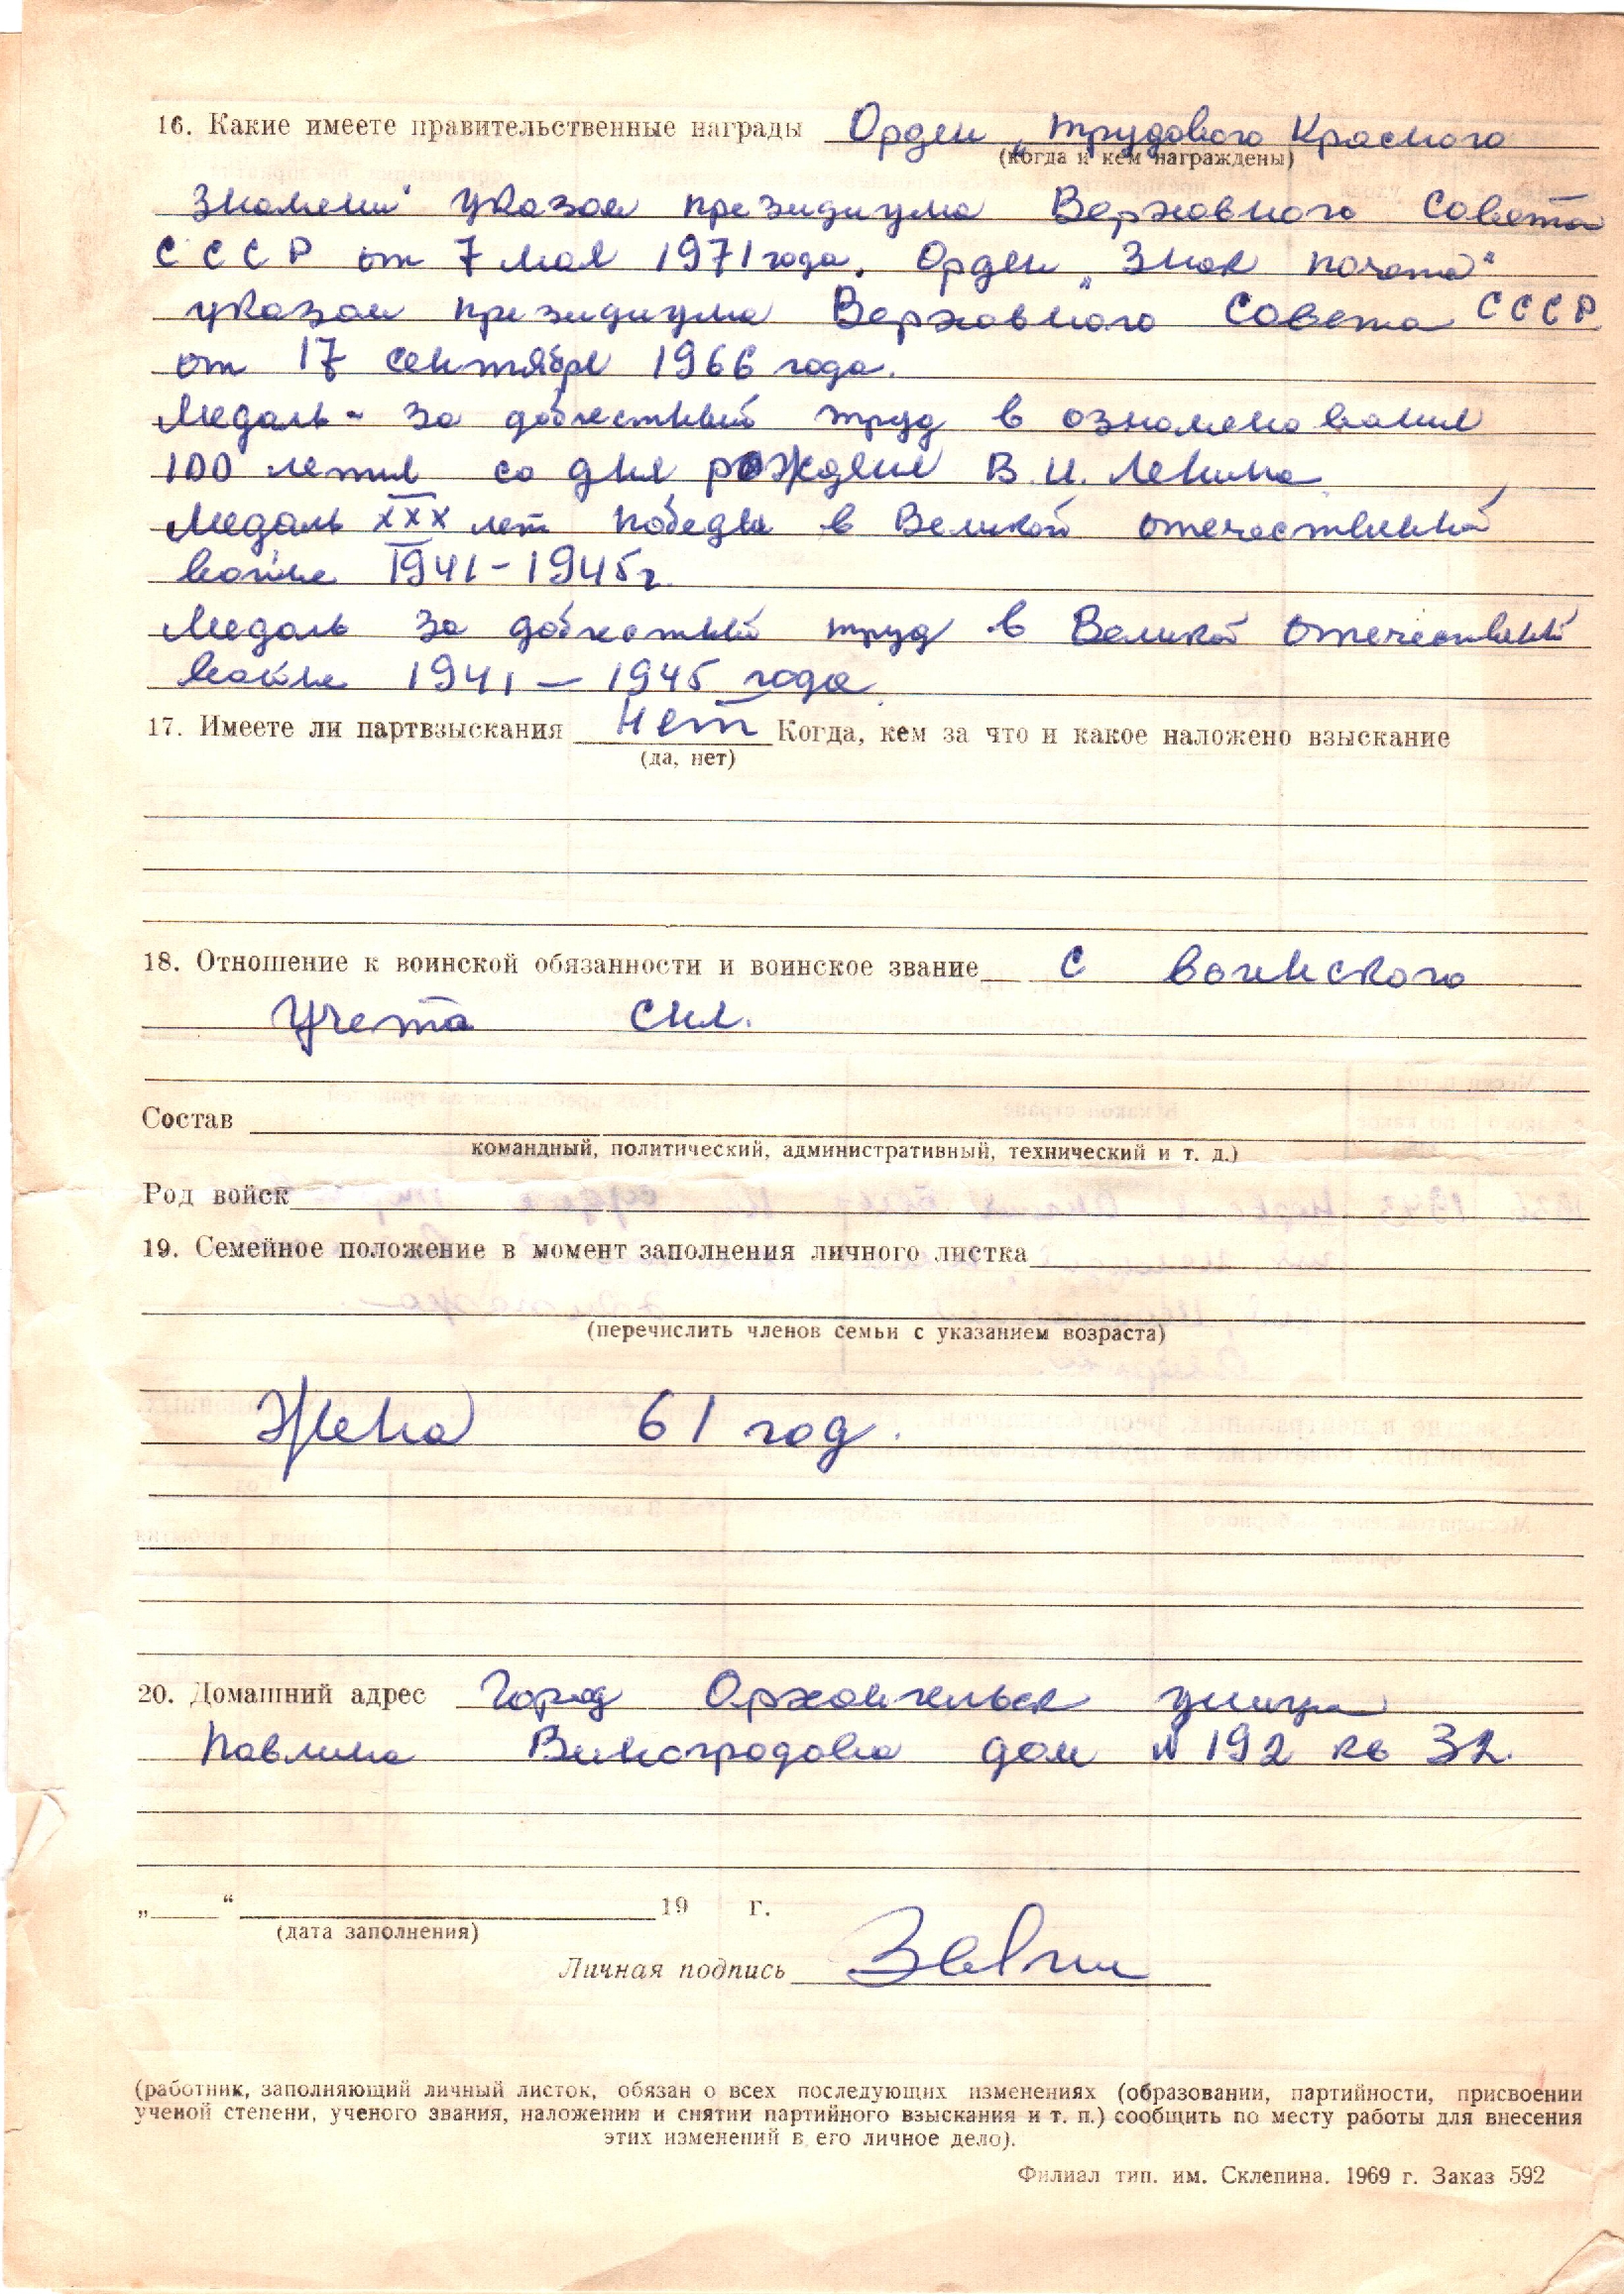 16. Какие имеете правительственные награды Орден „Трудового Красного
(когда и кем награждены)
Знамени“ указом президиума Верховного Совета
СССР от 7 мая 1971 года. Орден „Знак почета“
указом президиума Верховного Совета СССР
от 17 сентября 1966 года.
Медаль - за доблестный труд в ознаменования
100 летия со дня рождения В. И. Ленина
Медаль XXX лет победы в Великой отечественной
войне 1941-1945г
Медаль за доблестный труд в Великой отечественной
войне 1941 — 1945 года
17. Имеете ли партвзыскания нет Когда, кем за что и какое наложено взыскание
(да, нет)
18. Отношение к воинской обязанности и воинское звание с воинского
учета снл.
Состав
командный, политический, административный, технический и т. д.)
Род войск
19. Семейное положение в момент заполнения личного листка
(перечислить членов семьи с указанием возраста)
Жена 61 год.
20. Домашний адрес Город Архангельск улица
Павлина Виноградова дом № 192 кв 32.
„ “ 19 г.
(дата заполнения)
Личная подпись
(работник, заполняющий личный листок, обязан о всех последующих изменениях (образовании, партийности, присвоении
ученой степени, ученого звания, наложении и снятии партийного взыскания и т. п.) сообщить по месту работы для внесения
этих изменений в его личное дело).
Филиал тип. им. Склепина. 1969 г. Заказ 592